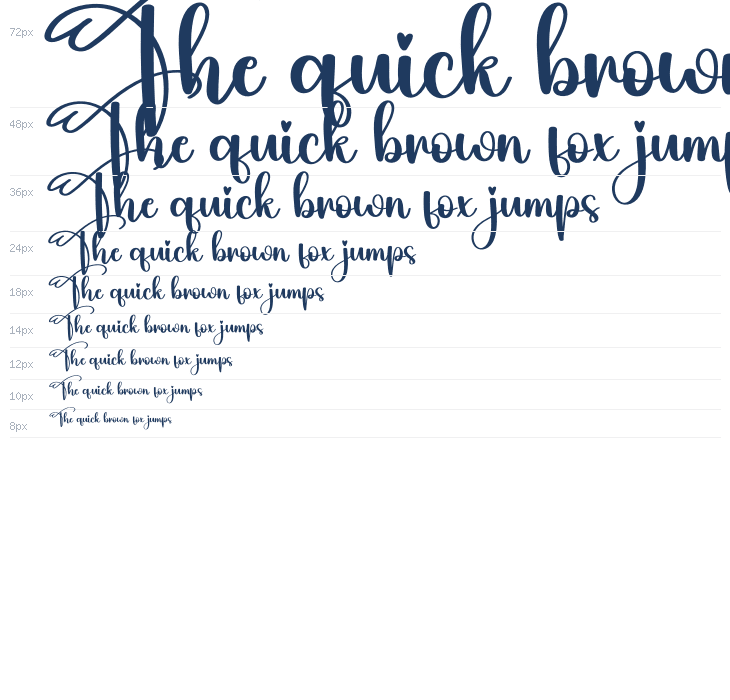 72px The quick brown
48px The quick brown fox jump
36px The quick brown fox jumps
24px The quick brown fox jumps
18px The quick brown fox jumps
14px The quick brown fox jumps
12px The quick brown fox jumps
10px The quick brown fox jumps
8px The quick brown fox jumps